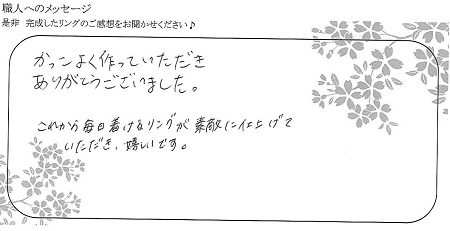 職人へのメッセージ
是非 完成したリングのご感想をお聞かせください♪
かっこよく作っていただき
ありがとうございました。
これから毎日着けるリングが素敵に仕上げて
いただき、嬉しいです。